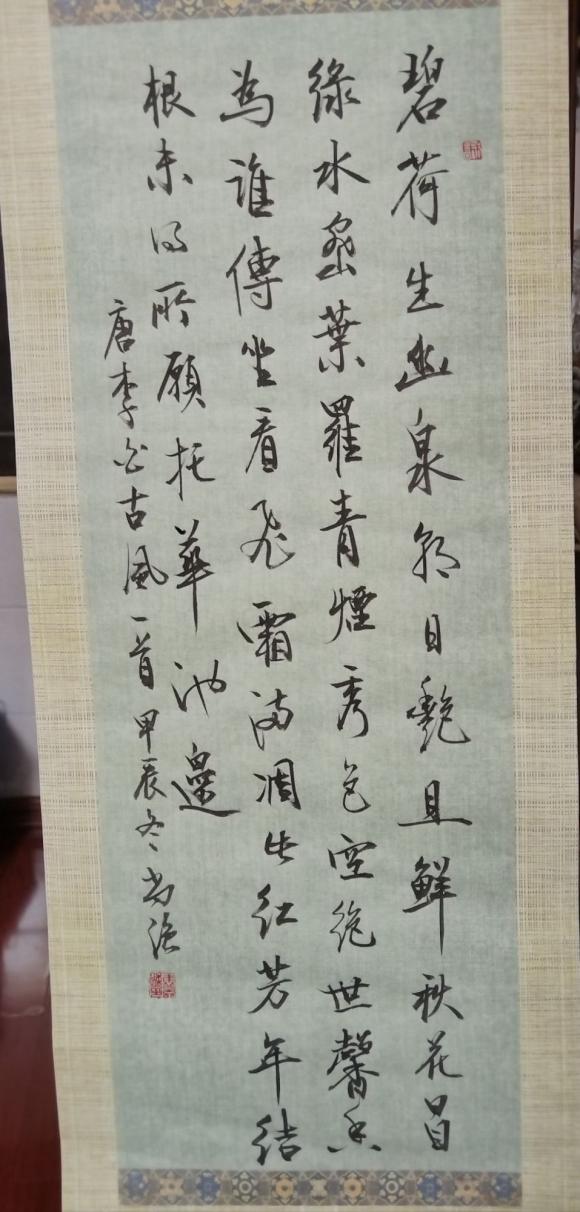 碧荷生幽泉朝日艷且鮮秋花冒
綠水密葉羅青煙秀色空絕世馨香
為誰傳坐看飛霜滿凋此紅芳年結
根未得所願托華池邊
唐李白古風一首甲辰冬尚